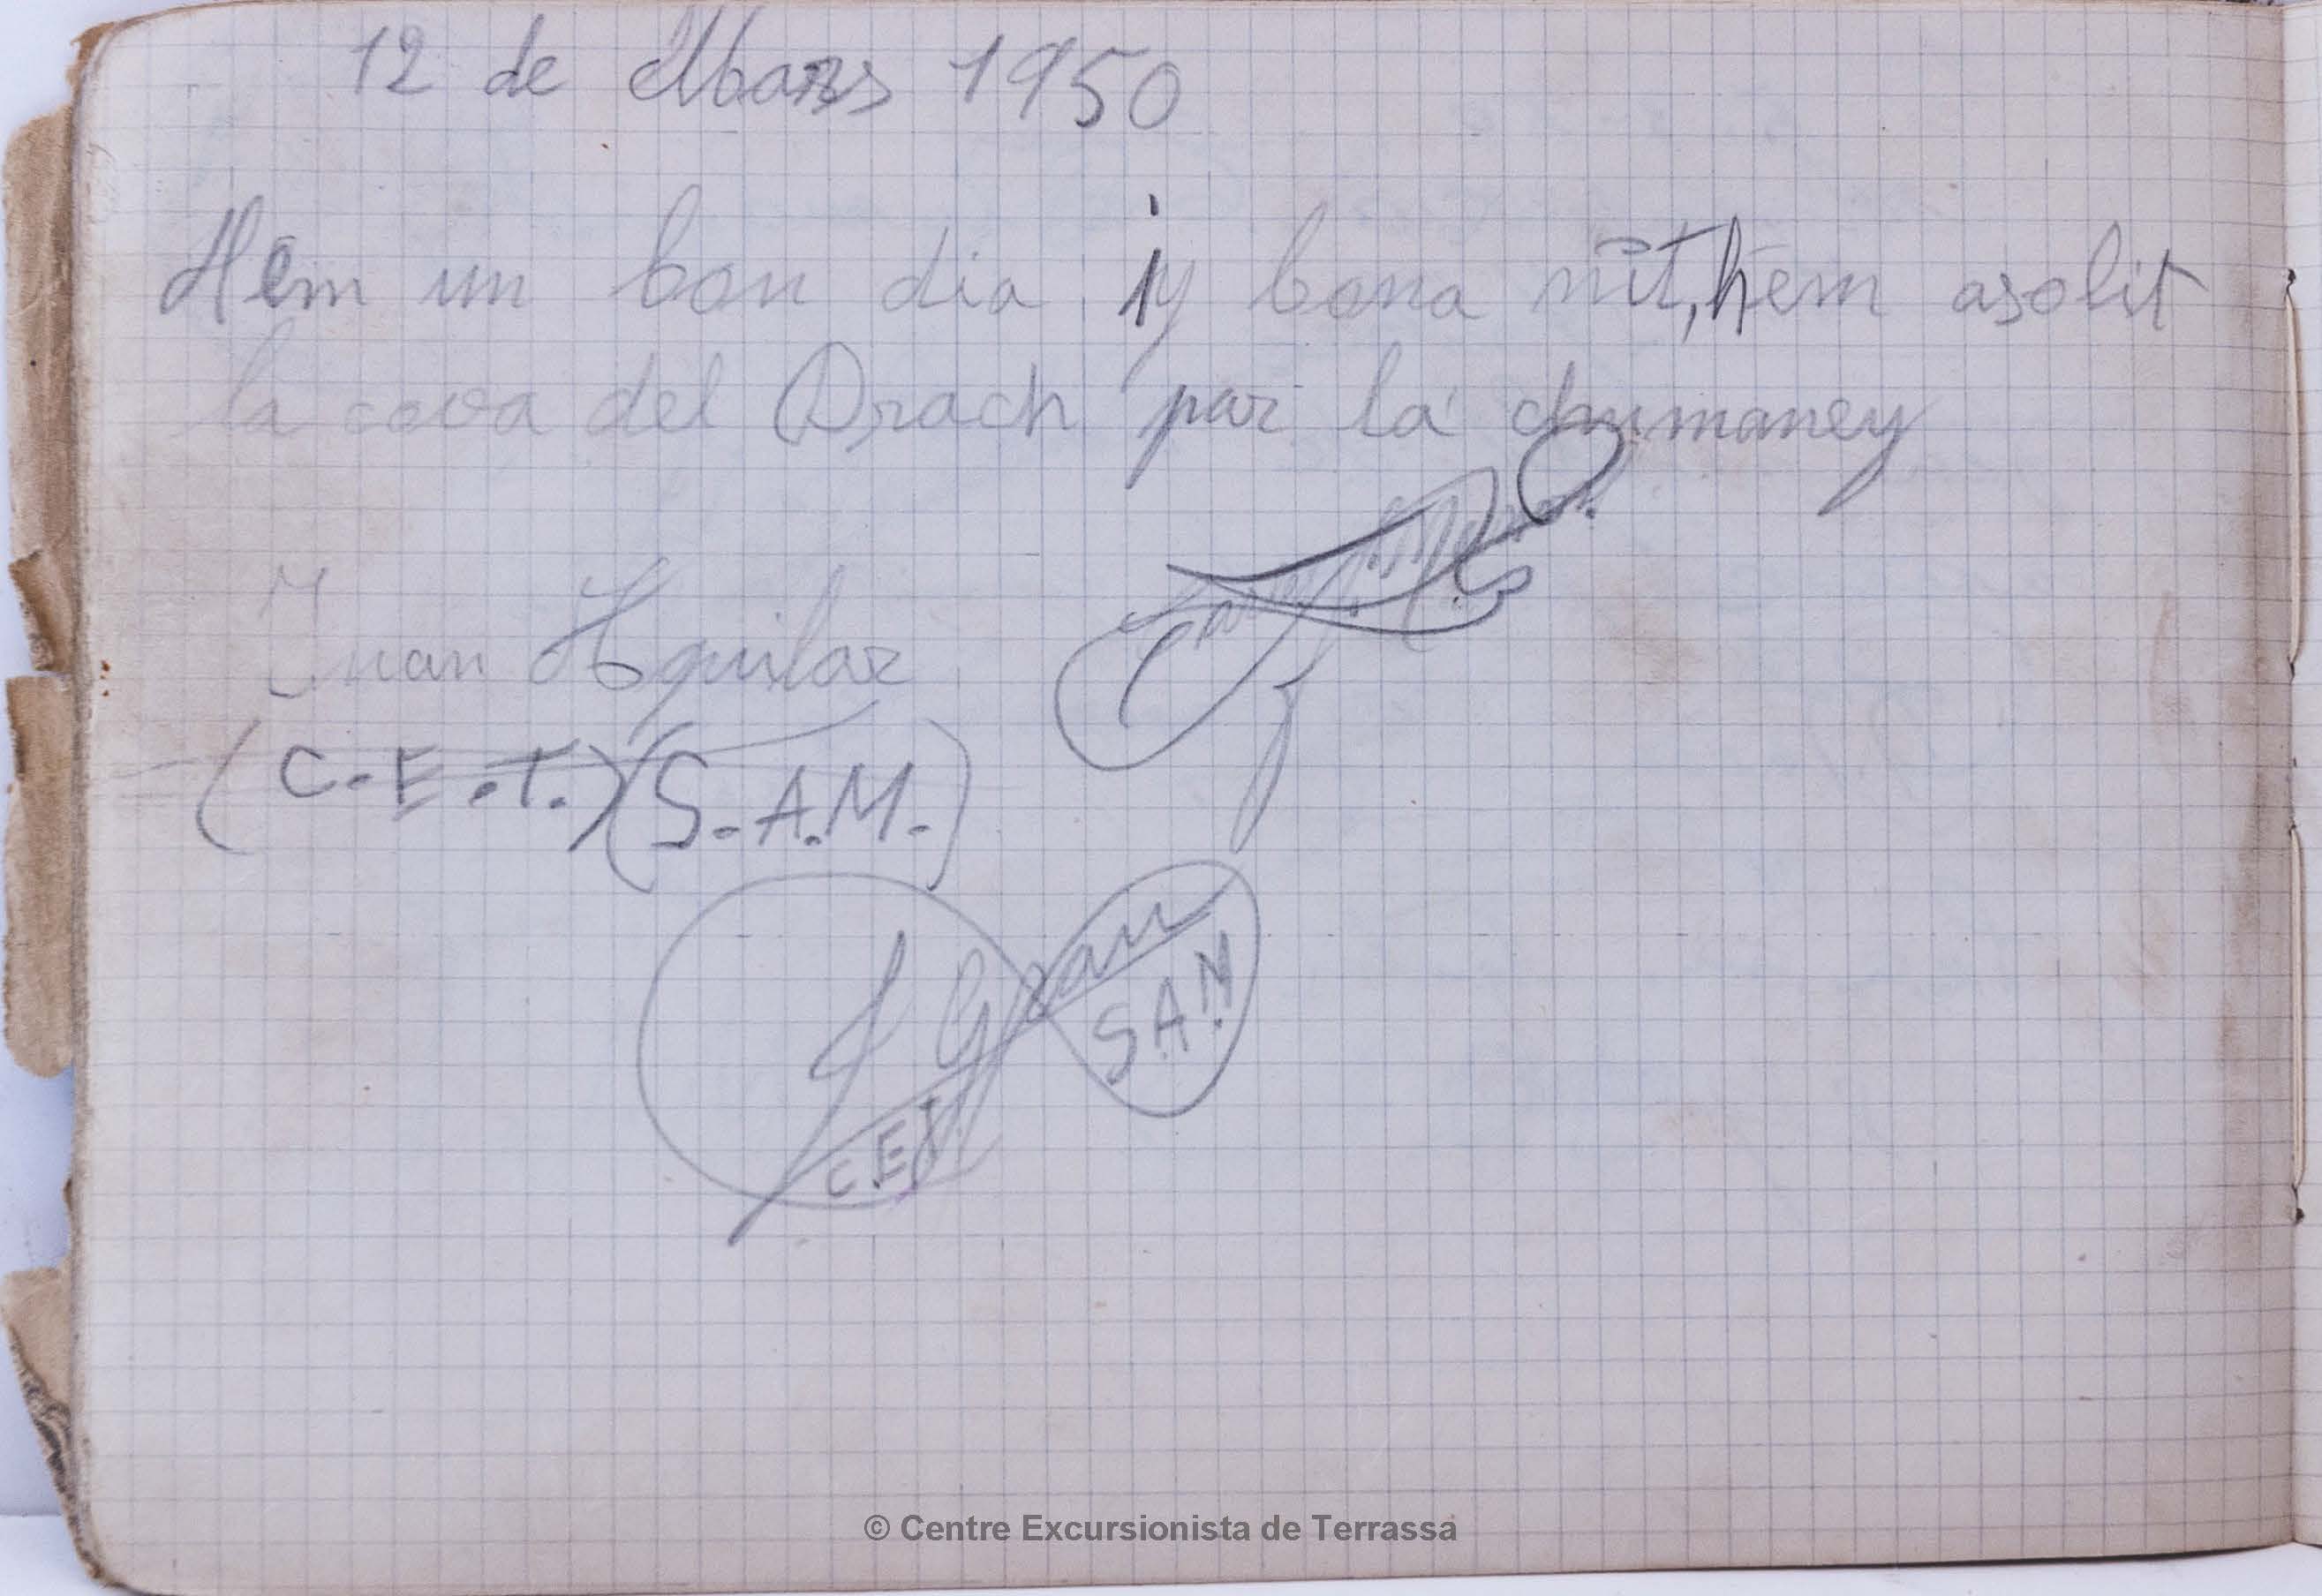 12 de Mars 1950
Hem un bon dia y bona nit, hem asolit
la cova del Drach par la chumaney
Juan Aguilar
(C.E.T.) (S.A.M.)
J Gran
S.A.M
C.E.T.
© Centre Excursionista de Terrassa